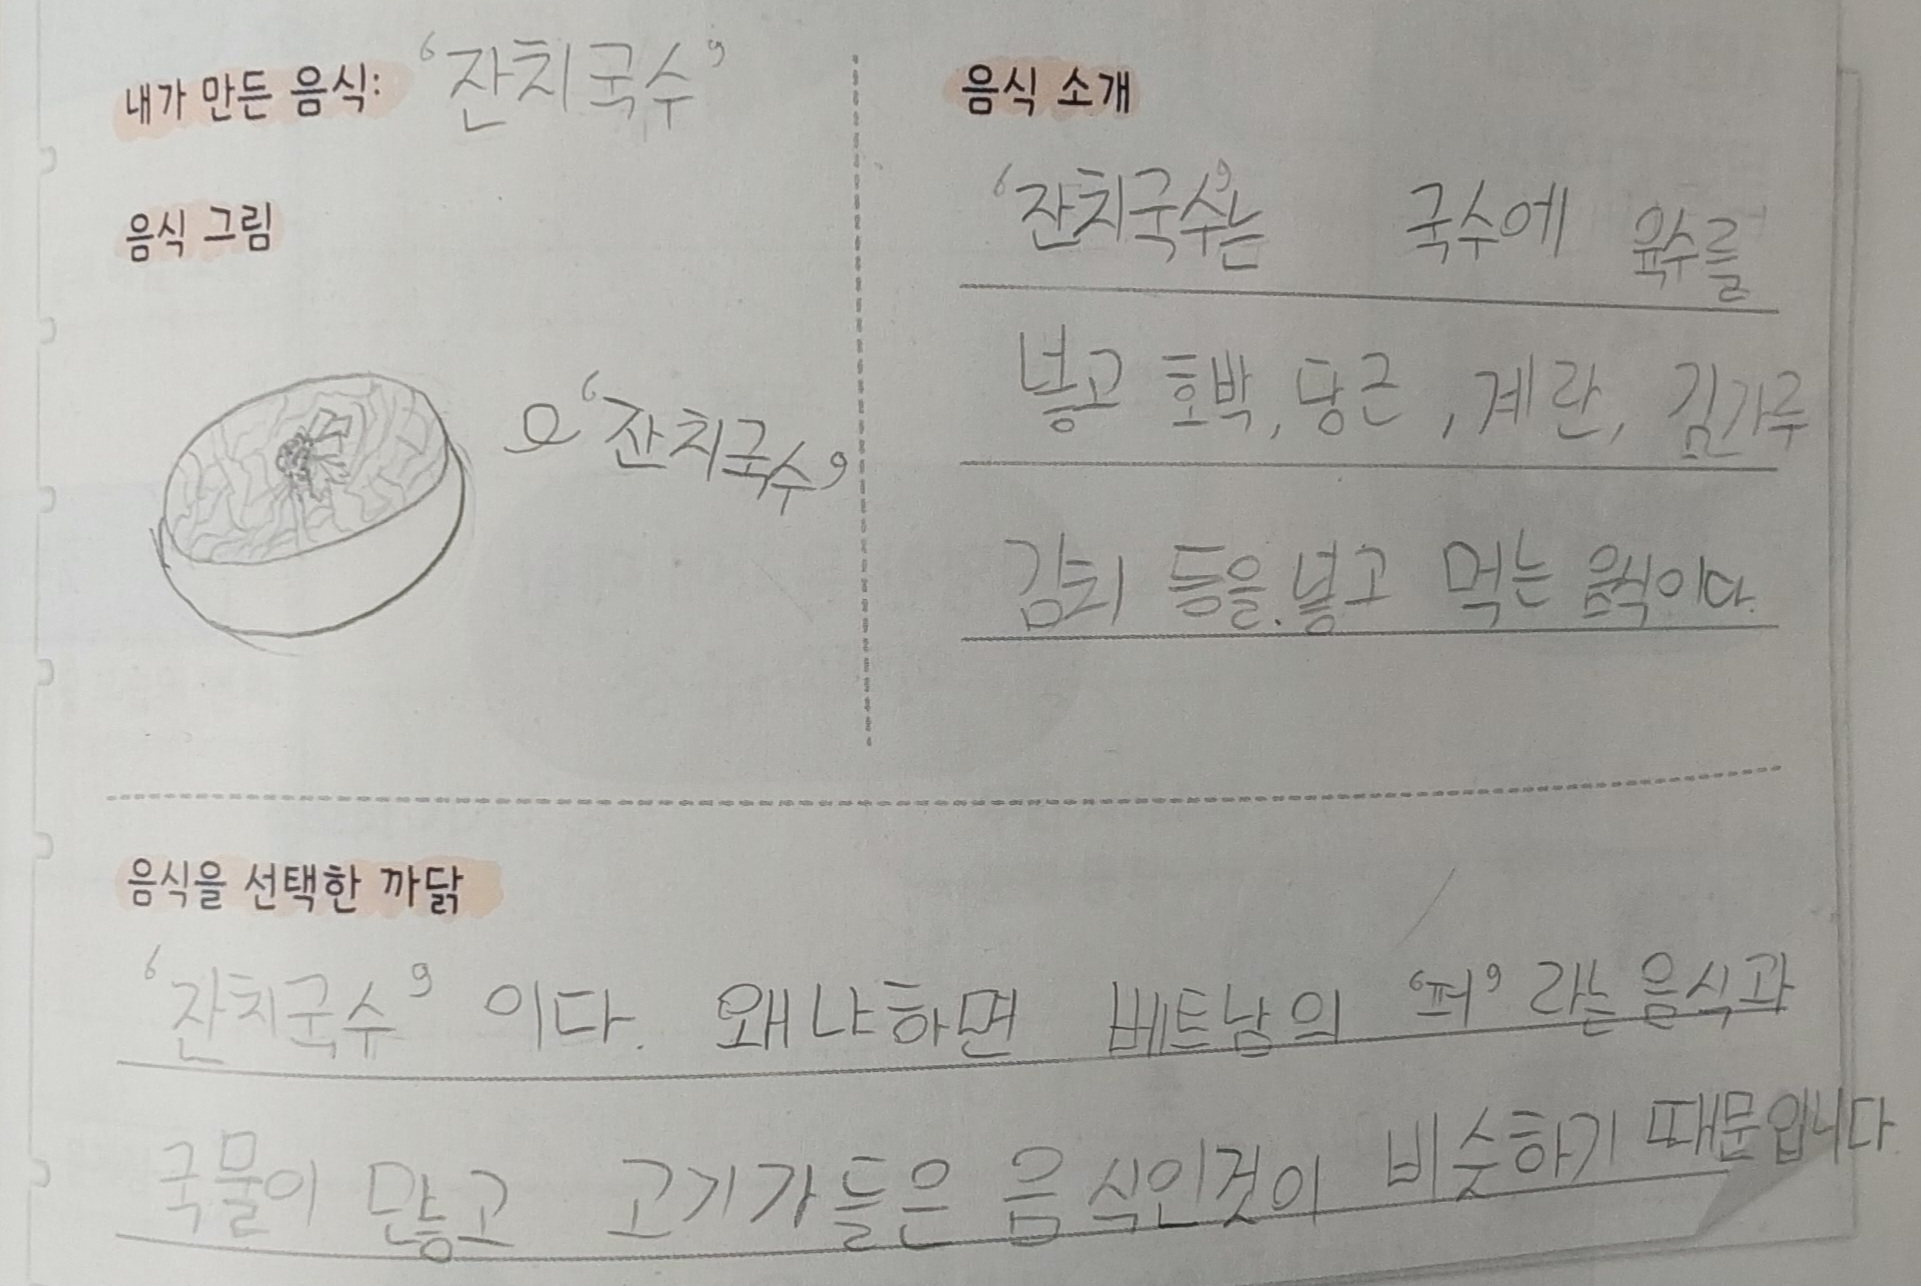 내가 만든 음식: '잔치국수'
음식 그림
으 '잔치국수'
음식 소개
'잔치국수'는 국수에 육수를
넣고 호박, 당근, 계란, 김가루
김치 등을. 넣고 먹는 음식이다.
음식을 선택한 까닭
'잔치국수' 이다. 왜냐하면 베트남의 '퍼' 라는 음식과
국물이 많고 고기가들은 음식인것이 비슷하기 때문입니다.